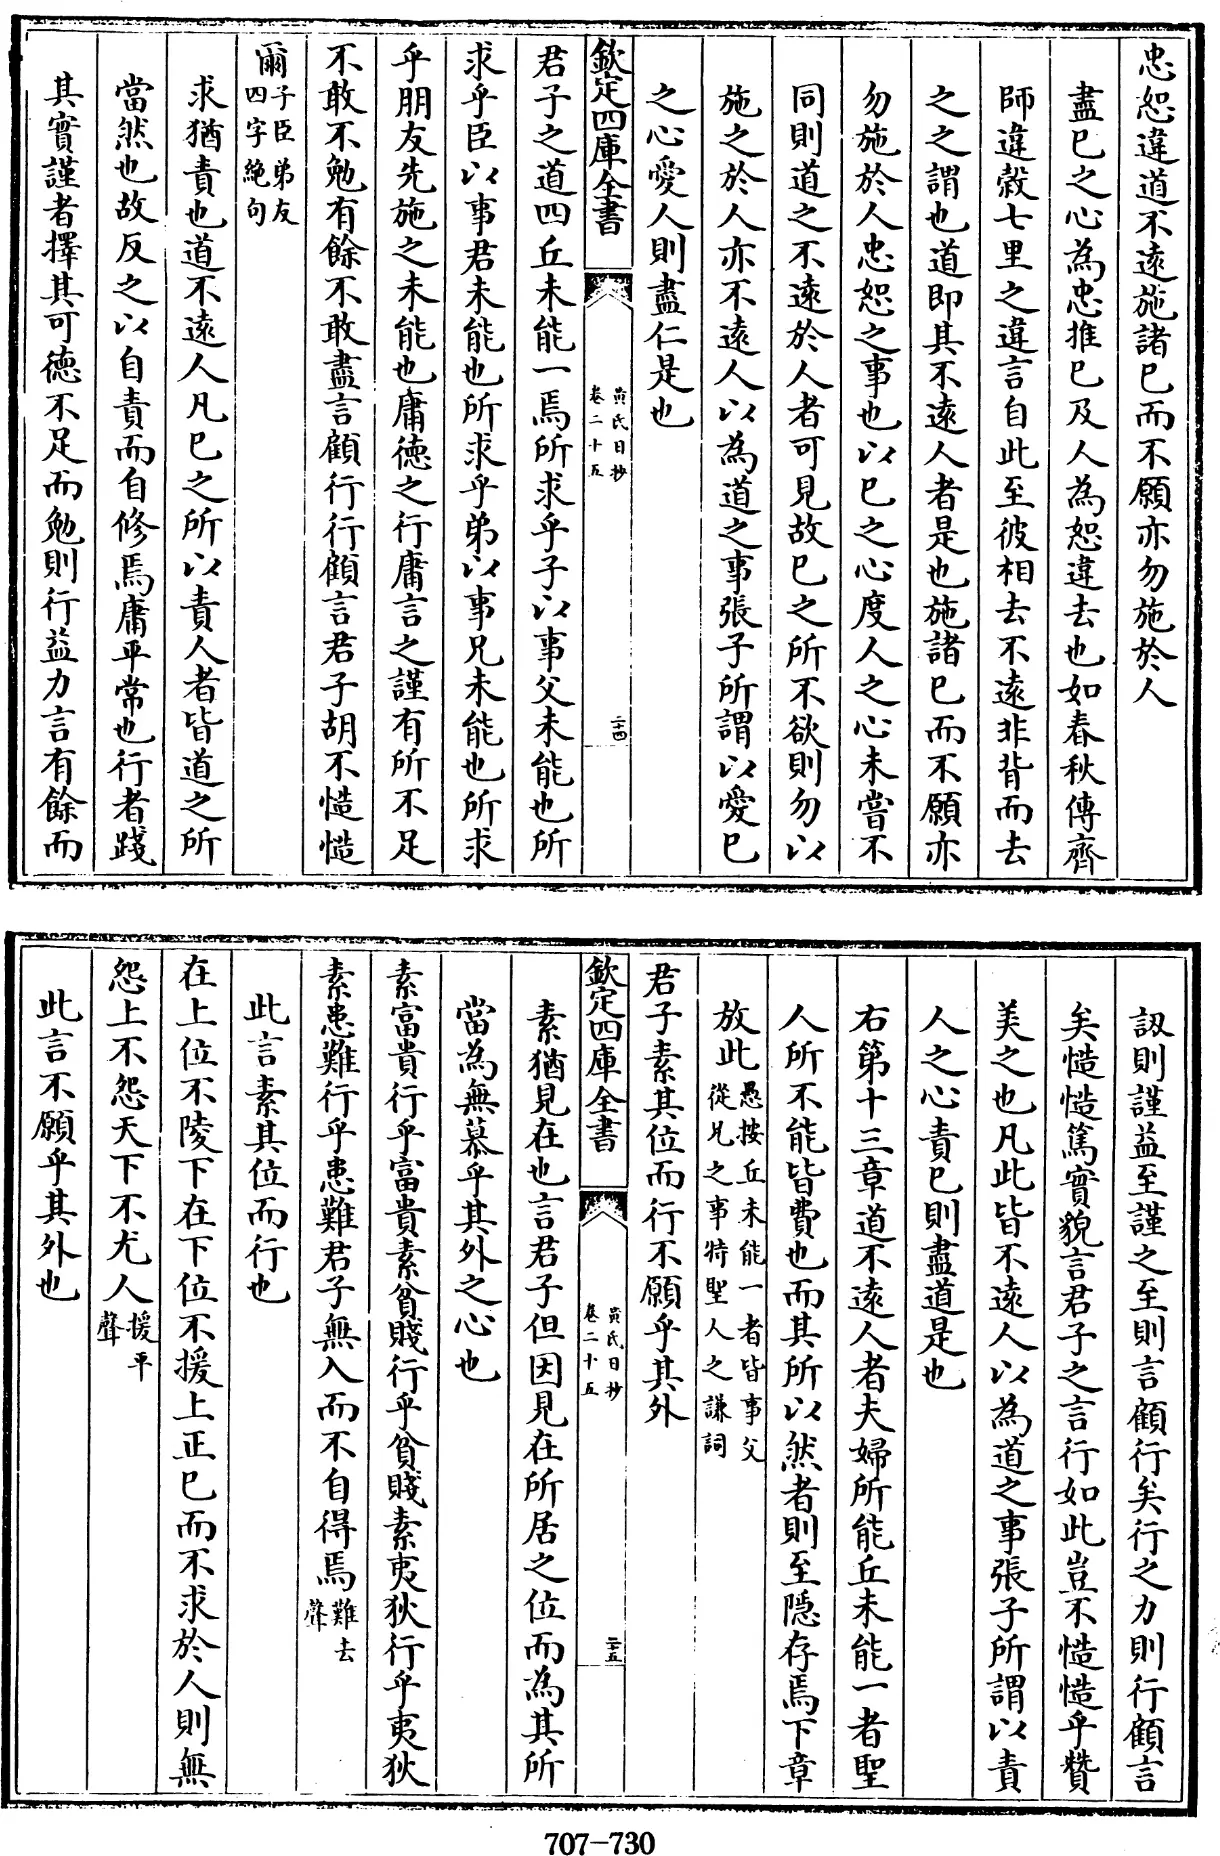 忠恕違道不遠施諸已而不願亦勿施於人
盡已之心為忠推已及人為恕違去也如春秋傳齊
師違榖七里之違言自此至彼相去不遠非背而去
之之謂也道即其不遠人者是也施諸已而不願亦
勿施於人忠恕之事也以已之心度人之心未嘗不
同則道之不遠於人者可見故已之所不欲則勿以
施之於人亦不遠人以為道之事張子所謂以愛已
之心愛人則盡仁是也
欽定四庫全書
黄氏日抄
卷二十五
二十四
君子之道四丘未能一焉所求乎子以事父未能也所
求乎臣以事君未能也所求乎弟以事兄未能也所求
乎朋友先施之未能也庸徳之行庸言之謹有所不足
不敢不勉有餘不敢盡言顧行行顧言君子胡不慥慥
爾
子臣弟友
四字絶句
求猶責也道不遠人凡已之所以責人者皆道之所
當然也故反之以自責而自修焉庸平常也行者踐
其實謹者擇其可徳不足而勉則行益力言有餘而
訒則謹益至謹之至則言顧行矣行之力則行顧言
矣慥慥篤實貌言君子之言行如此豈不慥慥乎贊
美之也凡此皆不遠人以為道之事張子所謂以責
人之心責已則盡道是也
右第十三章道不遠人者夫婦所能丘未能一者聖
人所不能皆費也而其所以然者則至隱存焉下章
放此
愚按丘未能一者皆事父
從兄之事特聖人之謙詞
君子素其位而行不願乎其外
欽定四庫全書
黄氏日抄
卷二十五
二十五
素猶見在也言君子但因見在所居之位而為其所
當為無慕乎其外之心也
素富貴行乎富貴素貧賤行乎貧賤素夷狄行乎夷狄
素患難行乎患難君子無入而不自得焉
難去
聲
此言素其位而行也
在上位不陵下在下位不援上正已而不求於人則無
怨上不怨天下不尤人
援平
聲
此言不願乎其外也
707-730